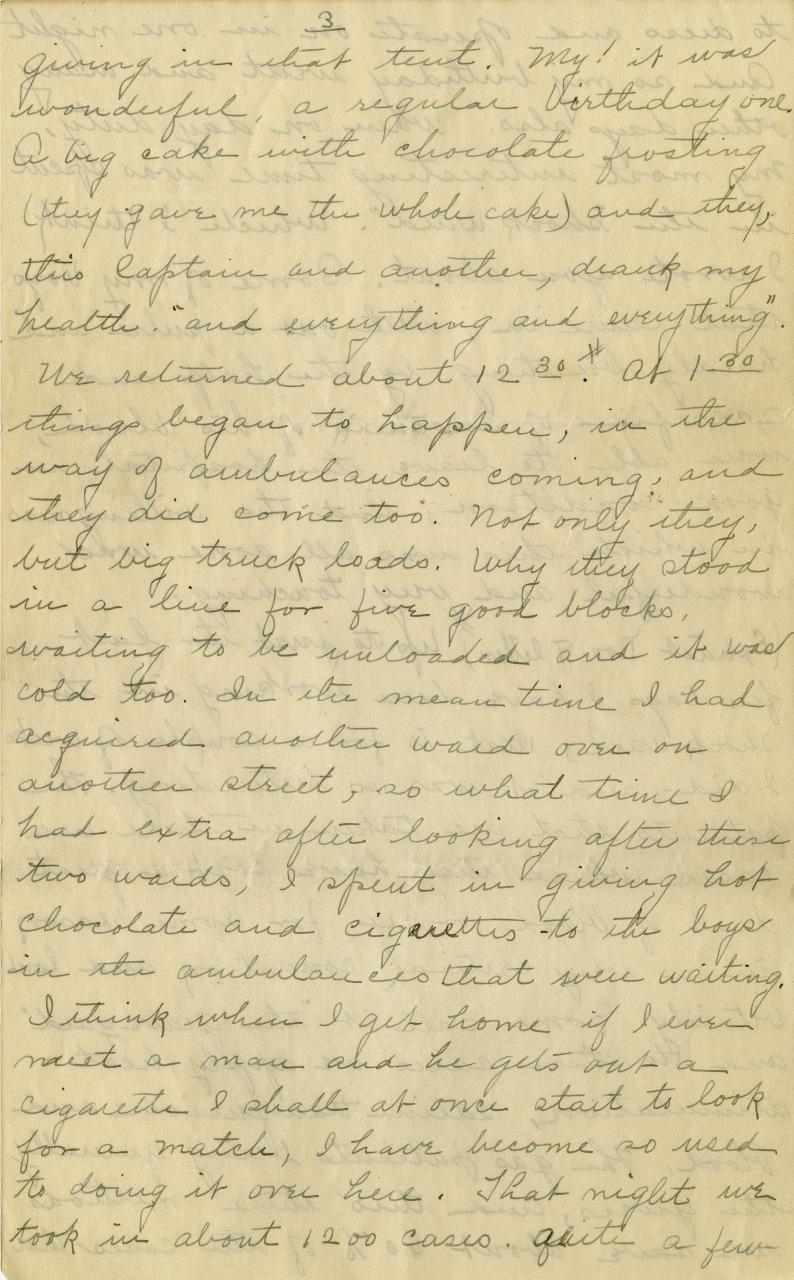 3
giving in that tent. My! it was
wonderful, a regular birthday one.
A big cake with chocolate frosting
(they gave me the whole cake) and they,
this Captain and another, drank my
health. "and everything and everything".
We returned about 12 30. At 1 30
things began to happen, in the
way of ambulances coming, and
they did come too. Not only they,
but big truck loads. Why they stood
in a line for five good blocks,
waiting to be unloaded and it was
cold too. In the mean time I had
acquired another ward over on
another street, so what time I
had extra after looking after these
two wards, I spent in giving hot
chocolate and cigarettes to the boys
in the ambulances that were waiting.
I think when I get home if I ever
meet a man and he gets out a
cigarette I shall at once start to look
for a match, I have become so used
to doing it over here. That night we
took in about 1200 cases. quite a few